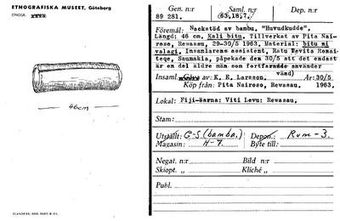 ETHNOGRAFISKA MUSEET, Göteborg
46cm
Gen. n:r
89 281.
Saml. n:r
(63,18,7.)
Föremål: Nackstöd av bambu, "Huvudkudde".
Längd: 46 cm, Kali bitu, Tillverkat av Pita Nai-
roso, Rewasau, 29-30/5 1963, Material: bitu ni
valagi. Insamlarens assistent, Ratu Ovavita Romai-
teqe, Saumakia, påpekade den 30/5 att det endast
är en del äldre män som fortfarande använder
vänd)
Insaml. av: K. E. Larsson, År: 30/5
Köp från: Pita Nairoso, Rewasau, 1963,
Lokal: Fiji-Navna: Viti Levu: Rewasau,
Stam:
Utställt: G-S. (bambu.)
Depon. Rum-3.
Magasin: H-7.
Byte till:
Negat. n:r
Bild n:r
Skiopt. »
Kliché »
Publ.